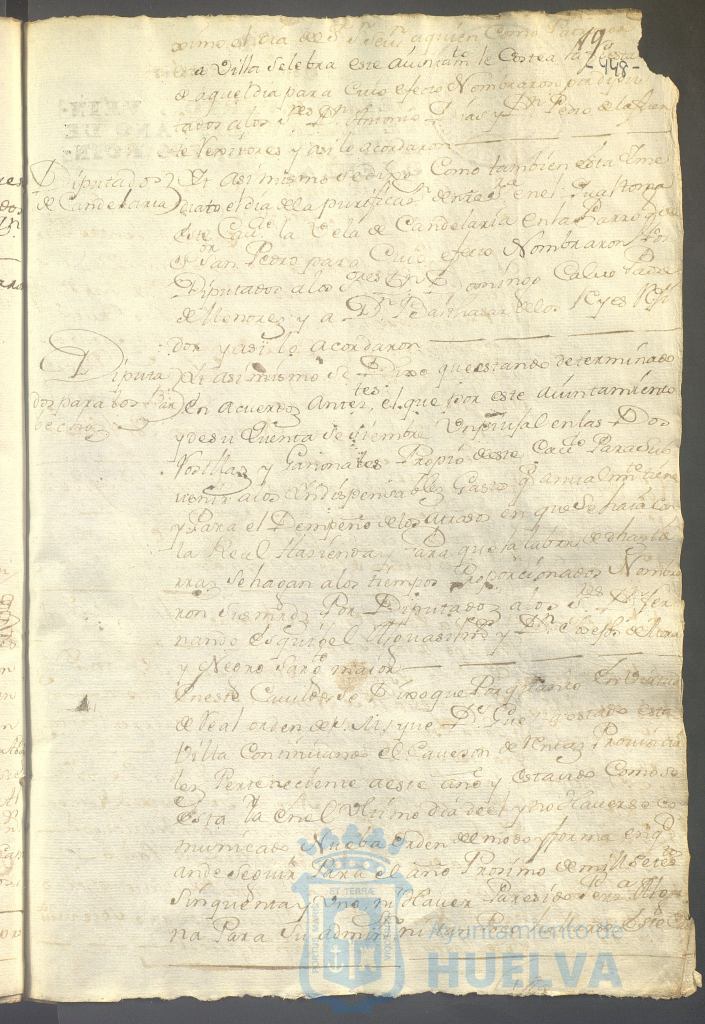 19
448
ximo el dia de Sn Sevn aquien Como Patron
esta Villa Selebra este aiuntamto le Costea la fiesta
de aquel dia para Cuio efecto Nombraron por dipu
tados alos Sres Dn Antonio Dias y Dn Pedro de la fuen
te Versitores y asi lo acordaron
Diputados
de Candelaria
Y asi mismo se dixo Como tambien esta Yme
diato el dia dela purificasn de nra Sra enel Cual toma
este Cavdo la Vela de Candelaria enla Parroquia
de Sor San Pedro para Cuio efecto Nombraron Por
Diputados alos Sres Dn Domingo Calvo Padre
de Menores y a Dn Balthasar delos Reyes Rexi
dor y asi lo acordaron
Diputa
dos para los Par
bechos
Y asi mismo Se Dixo que estando determinado
en acuerdos antestes, el que por este aiuntamiento
y de su Quenta se siembre Un pujal en las Dos
Nostllas y Garionales Propio deste Cavdo Para Sub
venir alos Yndispensables Gastos qe anualmte tiene
y Para el Dempeño delos atrasos en que se halla Con
la Real Hasienda y Para que la labra de dhas tie
rras se hagan alos tiempos Proporcionados Nombra
ron Sus mrds Por Diputados alos Sres Dn Fer
nando esquivel Alguasil y Dn Joseph de
y Negro Sargto maior
Yneste Cavildo Se Dixo que Por quanto En Virtud
de Real orden de S. M. que De Gue Costado esta
Villa Continuando el Cavezon de Rentas Provincia
les Perteneciente a este año y estando Como se
esta Ya en el Ultimo dia de el y no Haverse co
municado Nueba Orden de modo y forma en qe
ande Seguir Para el año Proximo de mill setezs
Sinquenta y Uno, ni Haver Paresido Perna Algu
na Para Su adminn ni
ET TERRAE
Ayuntamiento de
HUELVA